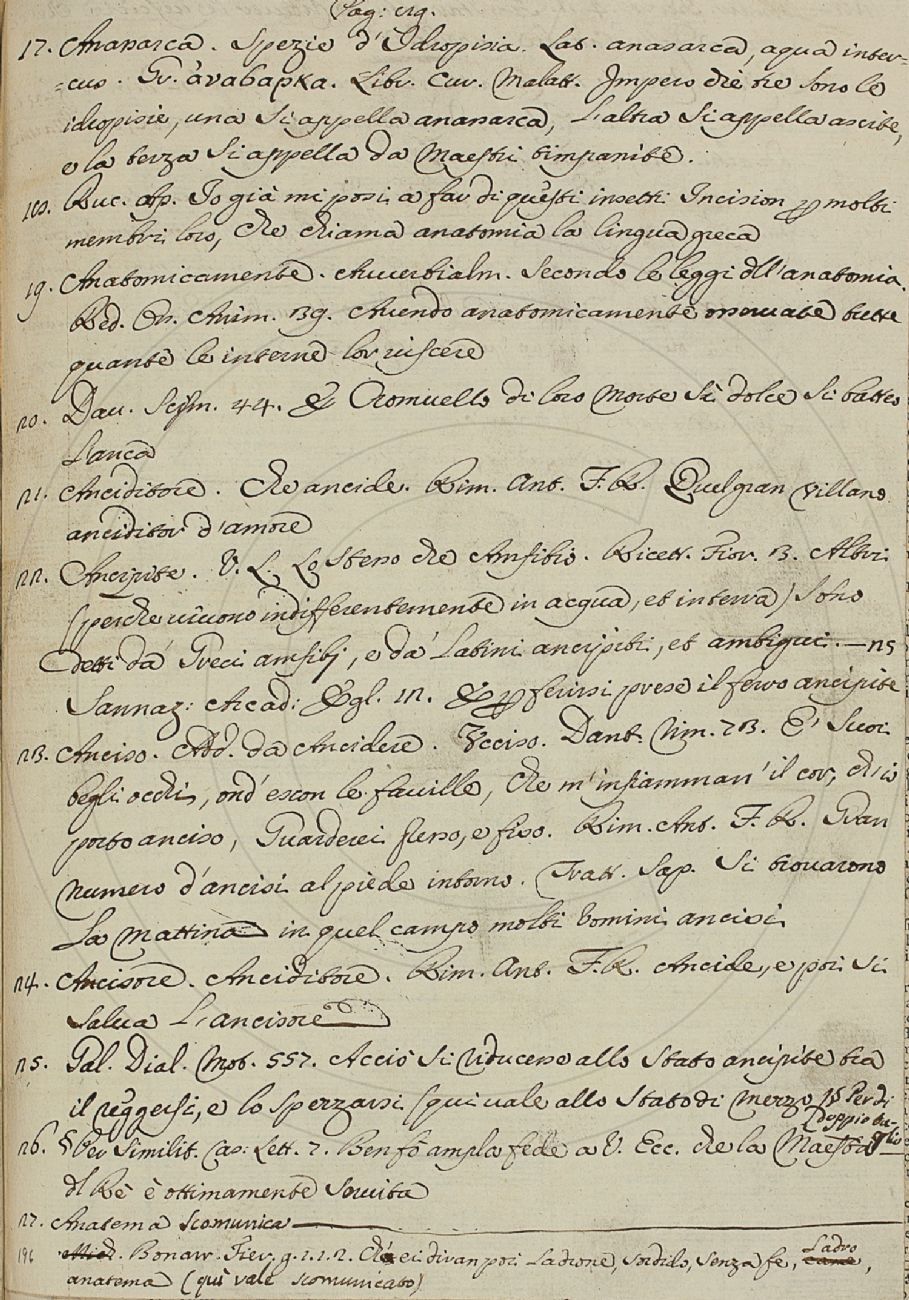 Pag: 219.
17. Anasarca. Spezie d'Idropisia. Lat. anasarca, aqua inter-
=cus. Gr. ἀνασαρκα. Libr. Cur. Malatt. Impero che tre sono le
idropisie, una si appella anasarca, L'altra si appella ascite,
e la terza si appella da Maestri timpanite.
Ruc. Ap. Io già mi posi a far di questi insetti Incision ꝑ molti
membri loro, Che chiama anatomia la lingua greca
19. Anatomicamente. Avverbialm. Secondo le leggi dll'anatomia.
Red. Os. Anim. 39. Avendo anatomicamente osservate tutte
quante le interne lor viscere
20. Dav. Scism. 44. E Cromuello di loro Morte sì dolce si batteo
L'anca
21. Anciditore. Che ancide. Rim. Ant. F. R. Quel gran Villano
anciditor d'amore
22. Ancipite. V. L. Lo Stesso che Amfibio. Ricett. Fior. 3. Altri
(perche vivono indifferentemente in acqua, et in terra) Sono
detti da' Greci amfibj, e da' Latini ancipiti, et ambigui. — 25
Sannaz: Arcad: Egl. 12. E ꝑ ferirsi prese il ferro ancipite
23. Anciso. Add. da Ancidere. Ucciso. Dant. Rim. 23. E' Suoi
begli occhi, ond'escon le faville, Che m'infiamman' il cor, ch'io
porto anciso, Guarderei presso, e fiso. Rim. Ant. F. R. Gran
numero d'ancisi al piede intorno. Tratt. Sap. Si trovarono
La Mattina in quel campo molti Uomini ancisi
24. Ancisore. Anciditore. Rim. Ant. F. R. Ancide, e poi si
Salva L'ancisore
25. Gal. Dial. Mot. 557. Acciò si riducesse allo Stato ancipite tra
il reggersi, e lo spezzarsi (qui vale allo Stato di mezzo) § Per di
Doppio ta-
glio
26. § Per Similit. Cas: Lett. 7. Ben fò ampla fede a V. Ecc. che la Maestà
dl Rè è ottimamente Servita
27. Anatema Scomunica
196 Bonarr. Fier. g. 2. 2. 2. Ch'ei divan poi Ladrone, sordido, senza fe, Ladro cane,
anatema (qui vale scomunicato)